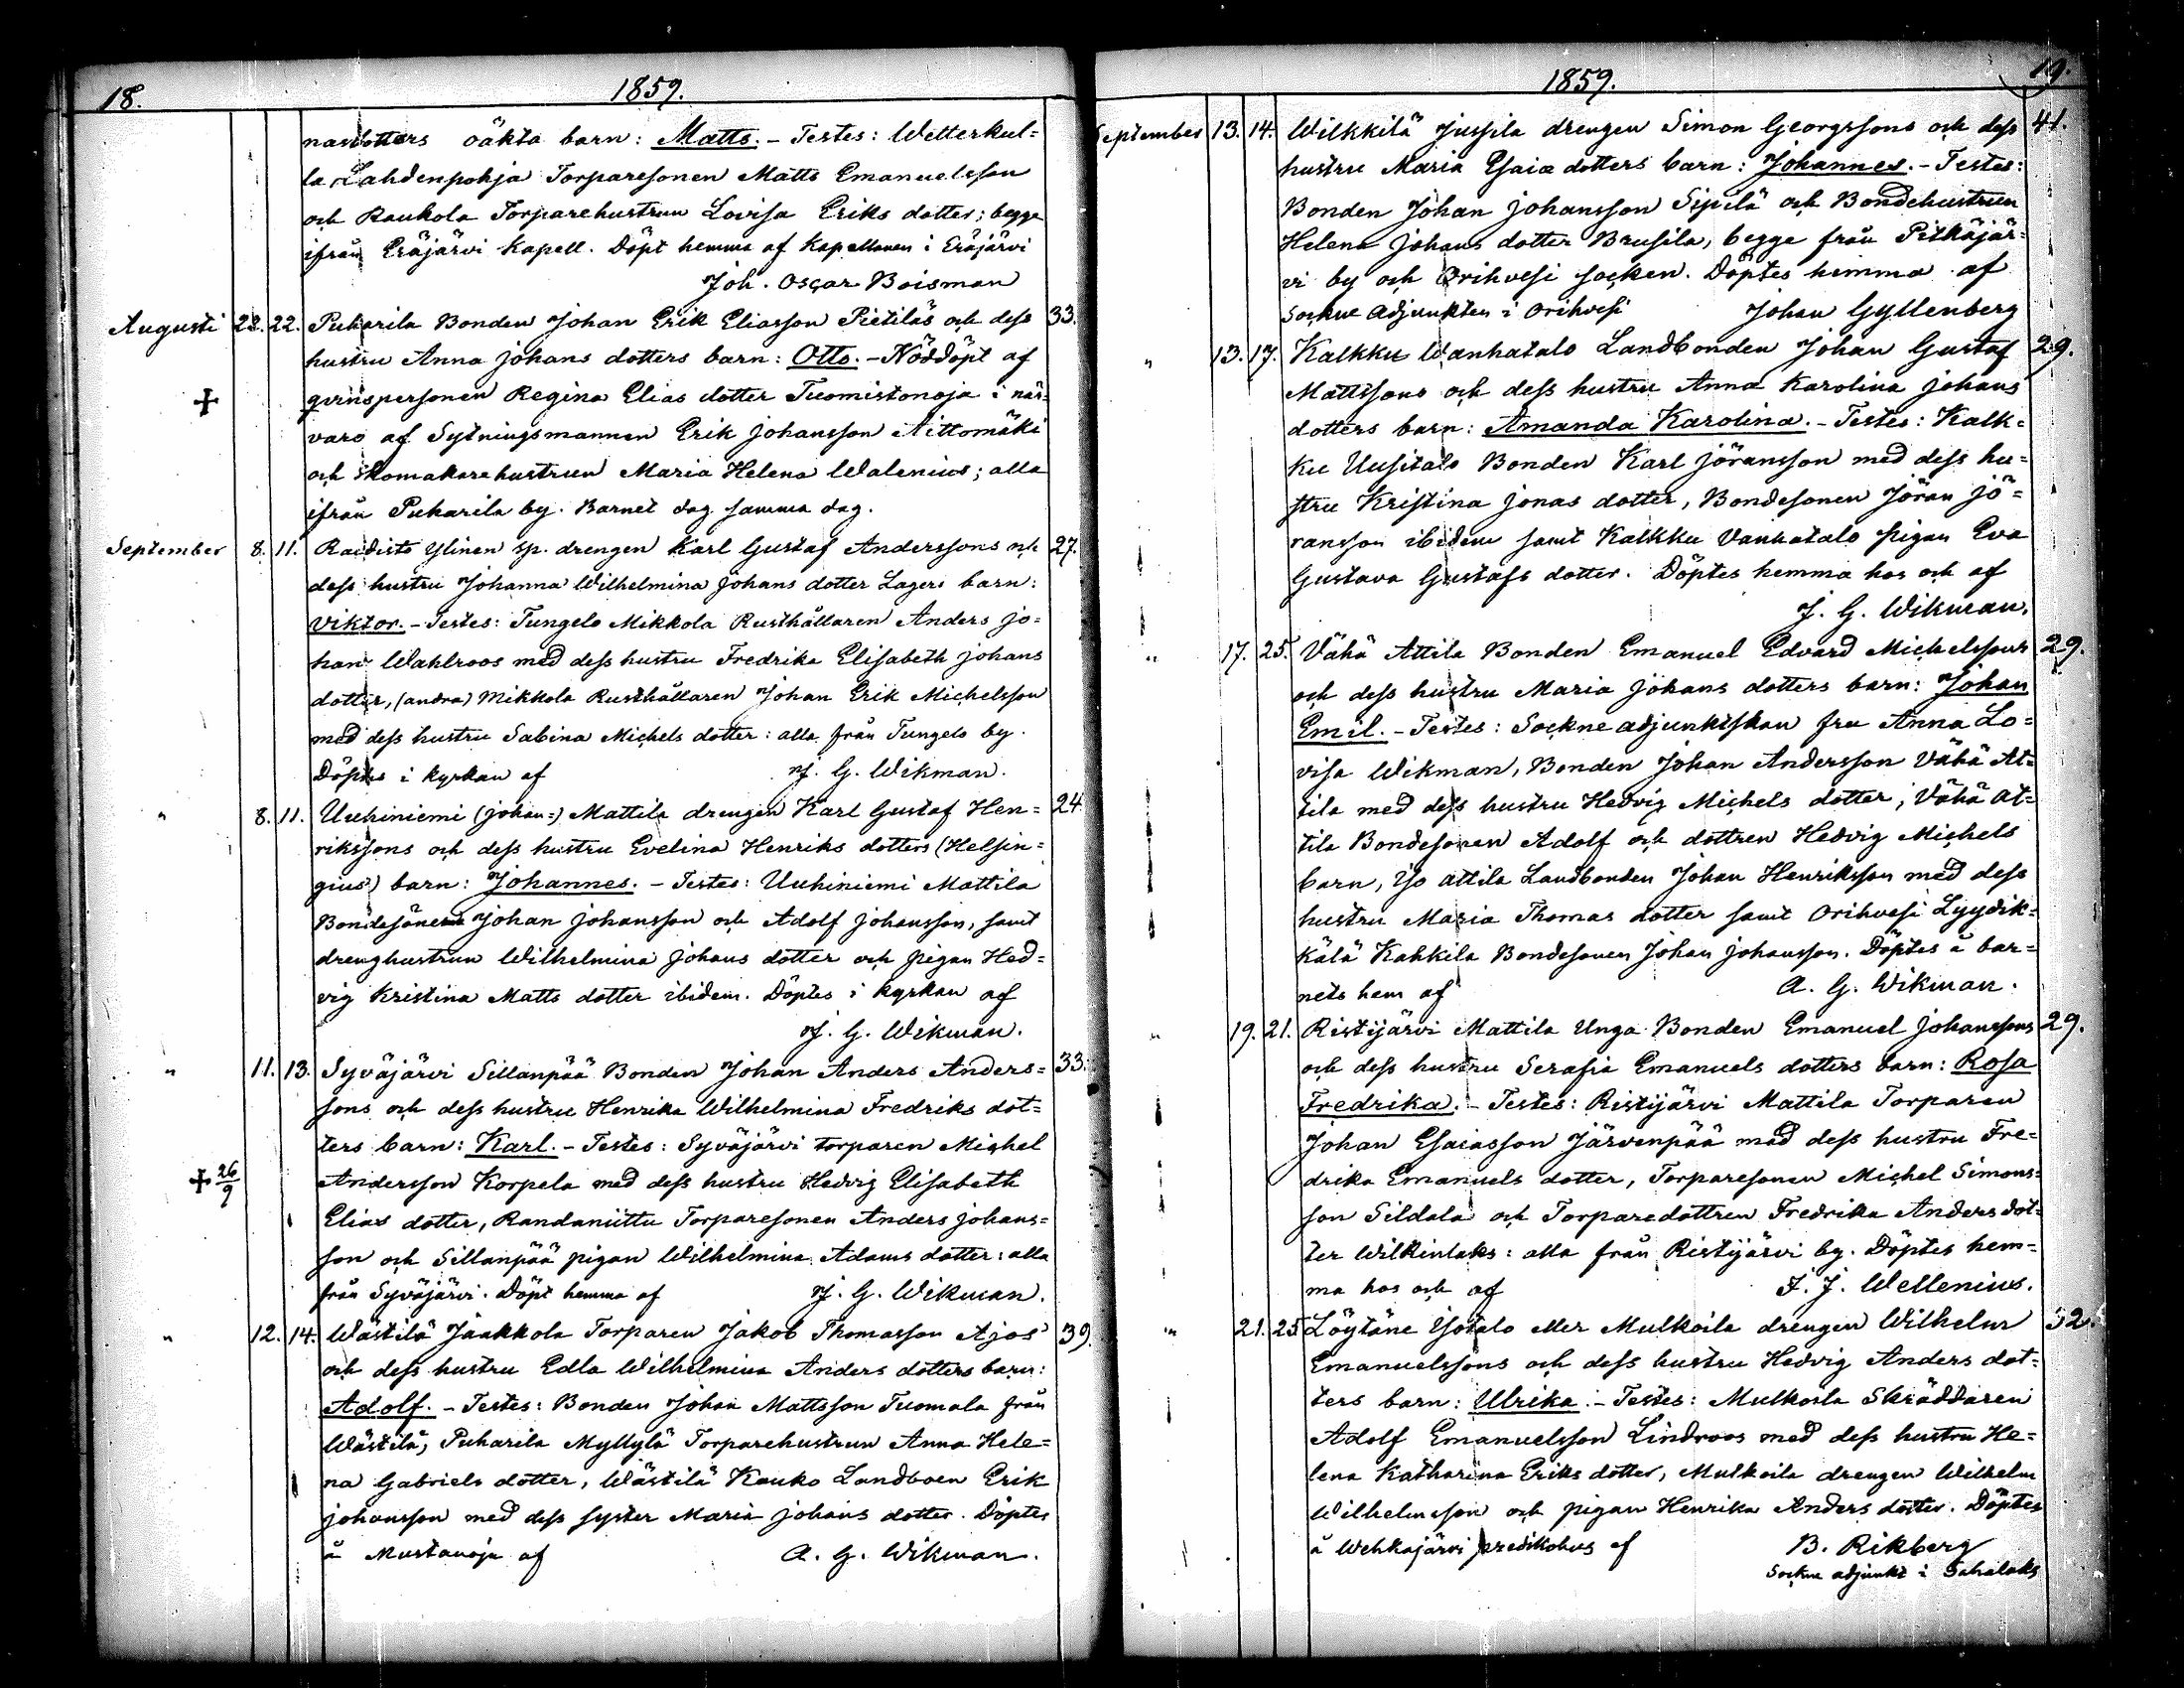 18.
1859.
nasdotters oäkta barn: Matts. - Testes: Wetterkul=
la Lahdenpohja Torparesonen Matts Emanuelsson
och Raukola Torparehustrun Lovisa Eriks dotter; begge
ifrån Eräjärvi Kapell. Döpt hemma af Kapellanen i Eräjärvi
Joh. Oscar Boisman
Augusti 22. 22. Puharila Bonden Johan Erik Eliasson Pietiläs och dess 33.
hustru Anna Johans dotters barn: Otto. - Nöddöpt af
+ qvinspersonen Regina Elias dotter Tuomistonoja i när=
varo af Sytningsmannen Erik Johansson Aittomäki
och Skomakarehustrun Maria Helena Walenius; alla
ifrån Puharila by. Barnet dog samma dag.
September 8. 11. Raudisto Ylinen sp. drengen Karl Gustaf Anderssons och 27.
dess hustru Johanna Wilhelmina Johans dotter Lagers barn:
Viktor. - Testes: Tungelo Mikkola Rusthållaren Anders Jo=
han Wahlroos med dess hustru Fredrika Elisabeth Johans
dotter, (andra) Mikkola Rusthållaren Johan Erik Michelsson
med dess hustru Sabina Michels dotter: alla från Tungelo by.
Döptes i kyrkan af J. G. Wikman.
" 8. 11. Uuhiniemi (Johan=) Mattila drengen Karl Gustaf Hen= 24.
rikssons och dess hustru Evelina Henriks dotters (Helsin=
gius) barn: Johannes. - Testes: Uuhiniemi Mattila
Bondesönerne Johan Johansson och Adolf Johansson, samt
drenghustrun Wilhelmina Johans dotter och pigan Hed=
vig Kristina Matts dotter ibidem. Döptes i kyrkan af
J. G. Wikman.
" 11. 13. Syväjärvi Sillanpää Bonden Johan Anders Anders= 33.
sons och dess hustru Henrika Wilhelmina Fredriks dot=
ters barn: Karl. - Testes: Syväjärvi torparen Michel
+ 26/9 Andersson Korpela med dess hustru Hedvig Elisabeth
Elias dotter, Randaniittu Torparesonen Anders Johans=
son och Sillanpää pigan Wilhelmina Adams dotter: alla
från Syväjärvi. Döpt hemma af J. G. Wikman.
" 12. 14. Wästilä Jaakkola Torparen Jakob Thomasson Ajos 39.
och dess hustru Edla Wilhelmina Anders dotters barn:
Adolf. - Testes: Bonden Johan Mattsson Tuomala från
Wästilä, Puharila Myllylä Torparehustrun Anna Hele=
na Gabriels dotter, Wästilä Kauko Landboen Erik
Johansson med dess syster Maria Johans dotter. Döptes
å Mustanoja af A. G. Wikman.
1859.
19.
September 13. 14. Wilkkilä Jussila drengen Simon Georgssons och dess 41.
hustru Maria Esaiæ dotters barn: Johannes. - Testes:
Bonden Johan Johansson Sipilä och Bondehustrun
Helena Johans dotter Brusila, begge från Pitkäjär=
vi by och Orihvesi socken. Döptes hemma af
Sockne Adjunkten i Orihvesi Johan Gyllenberg
" 13. 17. Kalkku Wanhatalo Landbonden Johan Gustaf 29.
Mattssons och dess hustru Anna Karolina Johans
dotters barn: Amanda Karolina. - Testes: Kalk=
ku Uusitalo Bonden Karl Jöransson med dess hu=
stru Kristina Jonas dotter, Bondesonen Jöran Jö=
ransson ibidem samt Kalkku Vanhatalo pigan Eva
Gustava Gustafs dotter. Döptes hemma hos och af
J. G. Wikman.
" 17. 25. Vähä Attila Bonden Emanuel Edvard Michelssons 29.
och dess hustru Maria Johans dotters barn: Johan
Emil. - Testes: Sockne adjunktskan fru Anna Lo=
visa Wikman, Bonden Johan Andersson Vähä At=
tila med dess hustru Hedvig Michels dotter, Vähä At=
tila Bondesonen Adolf och dottren Hedvig Michels
barn, Iso Attila Landbonden Johan Henriksson med dess
hustru Maria Thomas dotter samt Orihvesi Lyydik=
kälä Kakkila Bondesonen Johan Johansson. Döptes å bar=
nets hem af A. G. Wikman.
" 19. 21. Ristijärvi Mattila Unga Bonden Emanuel Johanssons 29.
och dess hustru Serafia Emanuels dotters barn: Rosa
Fredrika. - Testes: Ristijärvi Mattila Torparen
Johan Esaiasson Järvenpää med dess hustru Fre=
drika Emanuels dotter, Torparesonen Michel Simons=
son Sildala och Torparedottren Fredrika Anders dot=
ter Wilkinlaks: alla från Ristijärvi by. Döptes hem=
ma hos och af F. J. Wellenius.
" 21. 25. Löytäne Isotalo eller Mulkoila drengen Wilhelm 32.
Emanuelssons och dess hustru Hedvig Anders dot=
ters barn: Ulrika. - Testes: Mulkoila Skräddaren
Adolf Emanuelsson Lindroos med dess hustru He=
lena Katharina Eriks dotter, Mulkoila drengen Wilhelm
Wilhelmsson och pigan Henrika Anders dotter. Döptes
å Wehkajärvi predikohus af B. Rikberg
Sockne adjunkt i Sahalaks